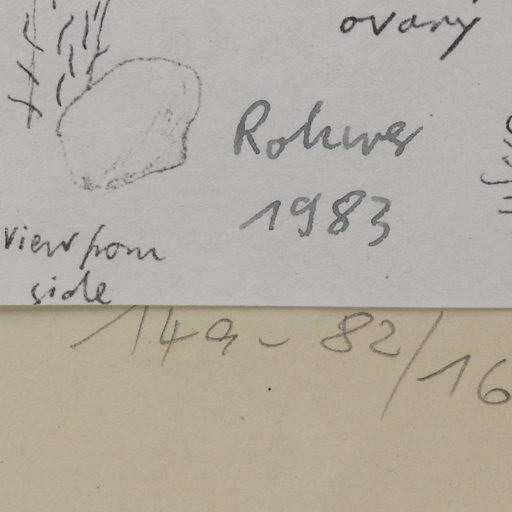 ovary
Rohwer
1983
view from
side
149-82/16